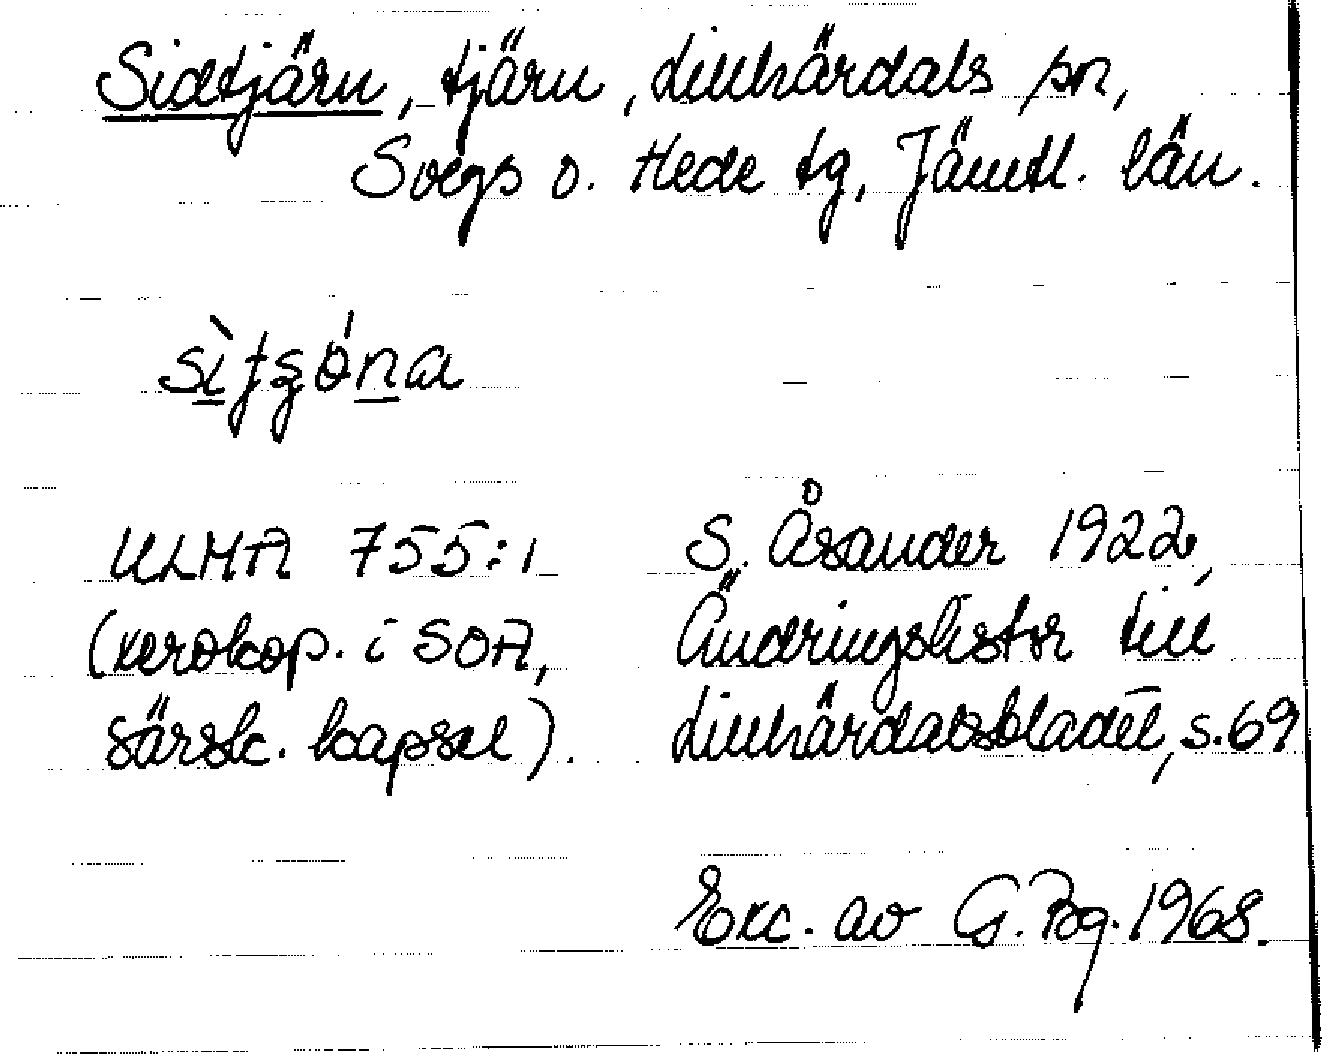 Sidtjärn, tjärn, Lillhärdals sn,
Svegs o. Hede tg, Jämtl. län.
ULMA 755:1
(xerokop. i SOA,
särsk. kapsel).
S. Åsander 1922,
Ändringslistor till
Lillhärdalsbladet, s. 69
Exc. av G. Bg. 1968.